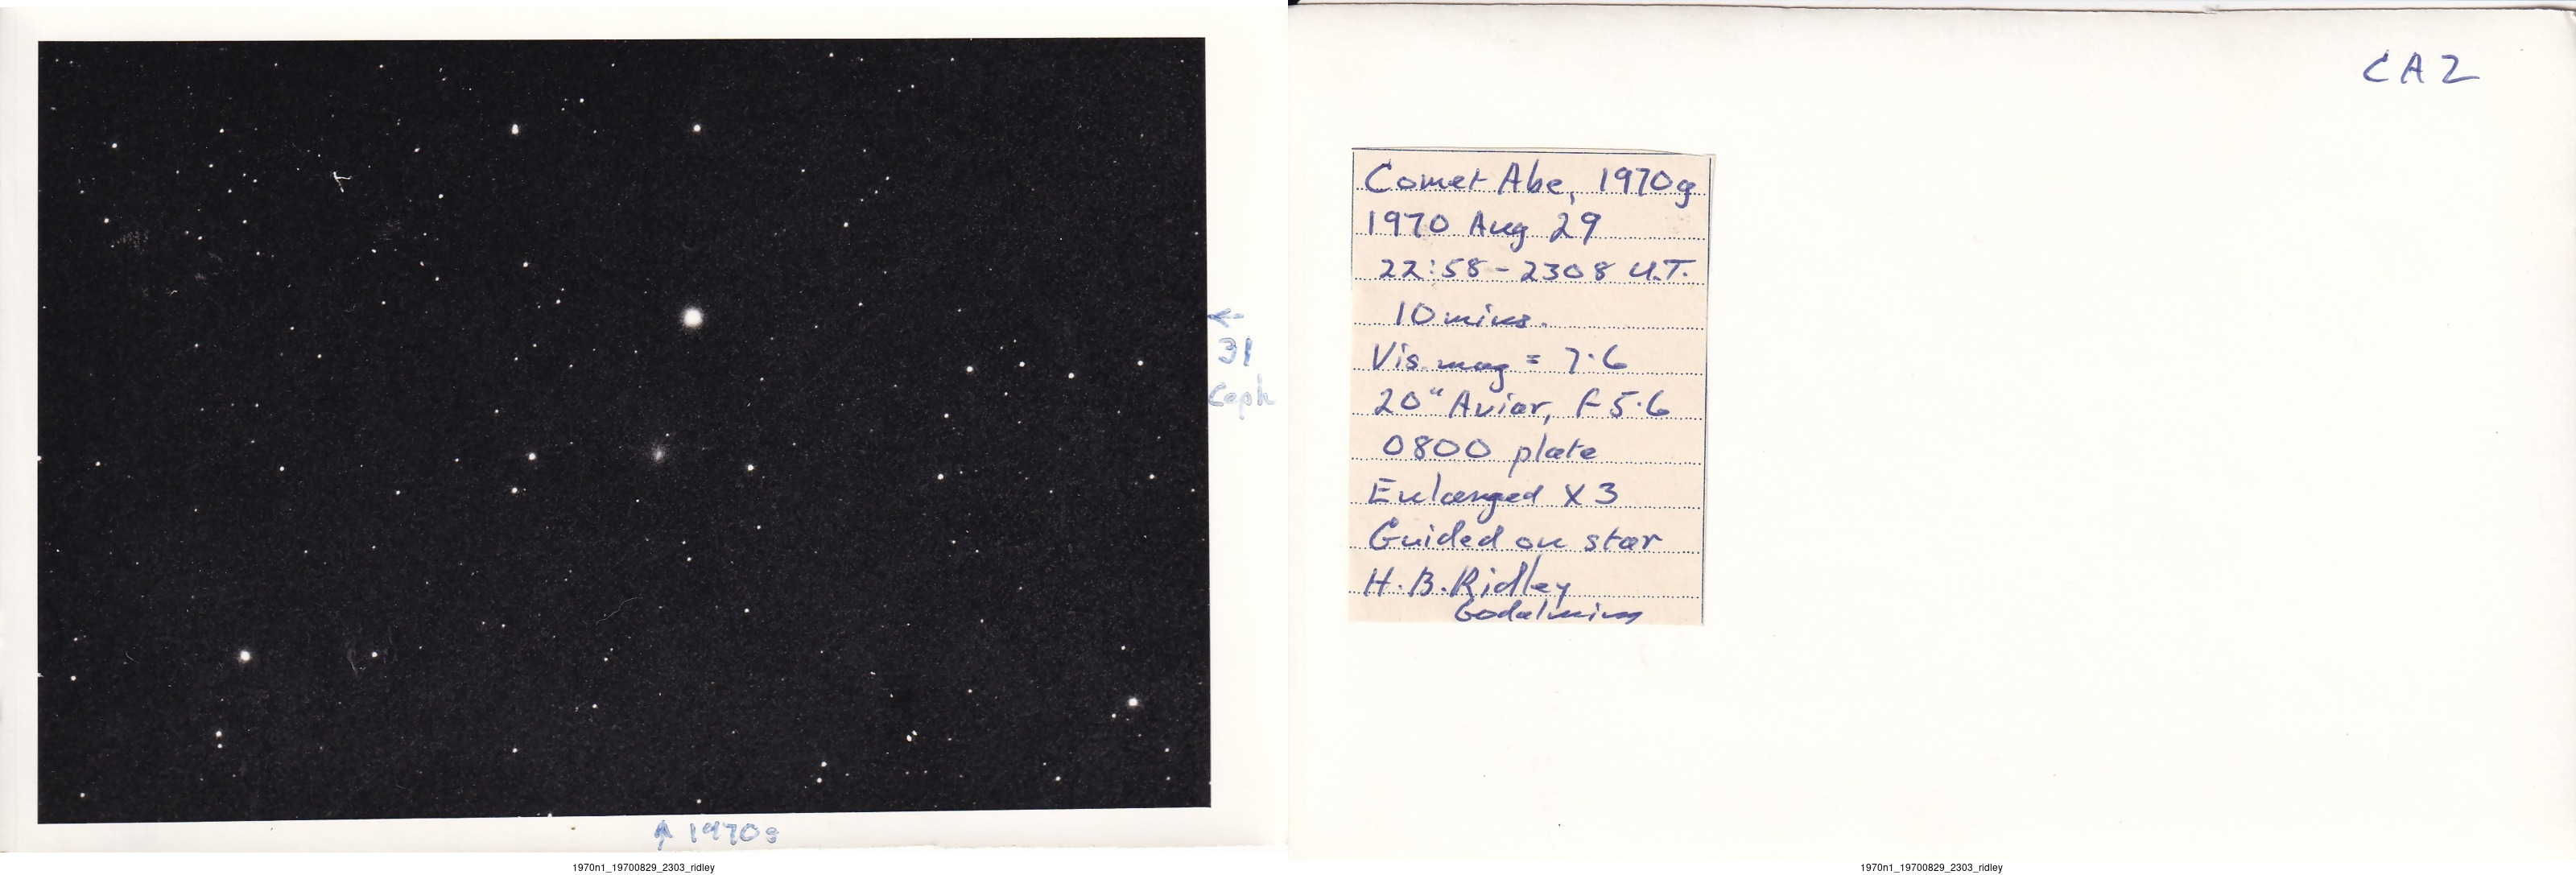 ←
31
Ceph
↑ 1970g
1970n1_19700829_2303_ridley
CA2
Comet Abe, 1970g
1970 Aug 29
22:58-2308 U.T.
10 mins.
Vis mag = 7.6
20" Aviar, F5.6
0800 plate
Enlarged X3
Guided on star
H.B.Ridley
Godalming
1970n1_19700829_2303_ridley